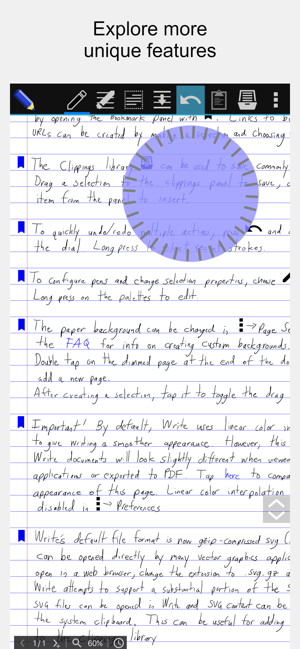 Explore more
unique features
by opening the Bookmark panel with . Links to
URLs can be created by and choosing
The Clippings can be used to save commonly
Drag a selection to the clippings panel to save,
item from the panel to insert.
To quickly undo/redo multiple actions, and
the dial. Long press strokes.
To configure pens and change selection properties, choose
Long press on the palettes to edit.
The paper background can be changed in → Page
the FAQ for info on creating custom backgrounds.
Double tap on the dimmed page at the end of the
add a new page.
After creating a selection, tap it to toggle the drag
Important! By default, Write uses linear color
to give writing a smoother appearance. However, this
Write documents will look slightly different when
applications or exported to PDF. Tap here to
appearance of this page. Linear color interpolation
disabled in → Preferences
Write's default file format is now gzip-compressed svg
can be opened directly by many vector graphics
open in a web browser, change the extension to .svg.gz
Write attempts to support a substantial portion of the
SVG files can be opened in Write and SVG content can be
the system clipboard. This can be useful for adding
library
1/1
60%